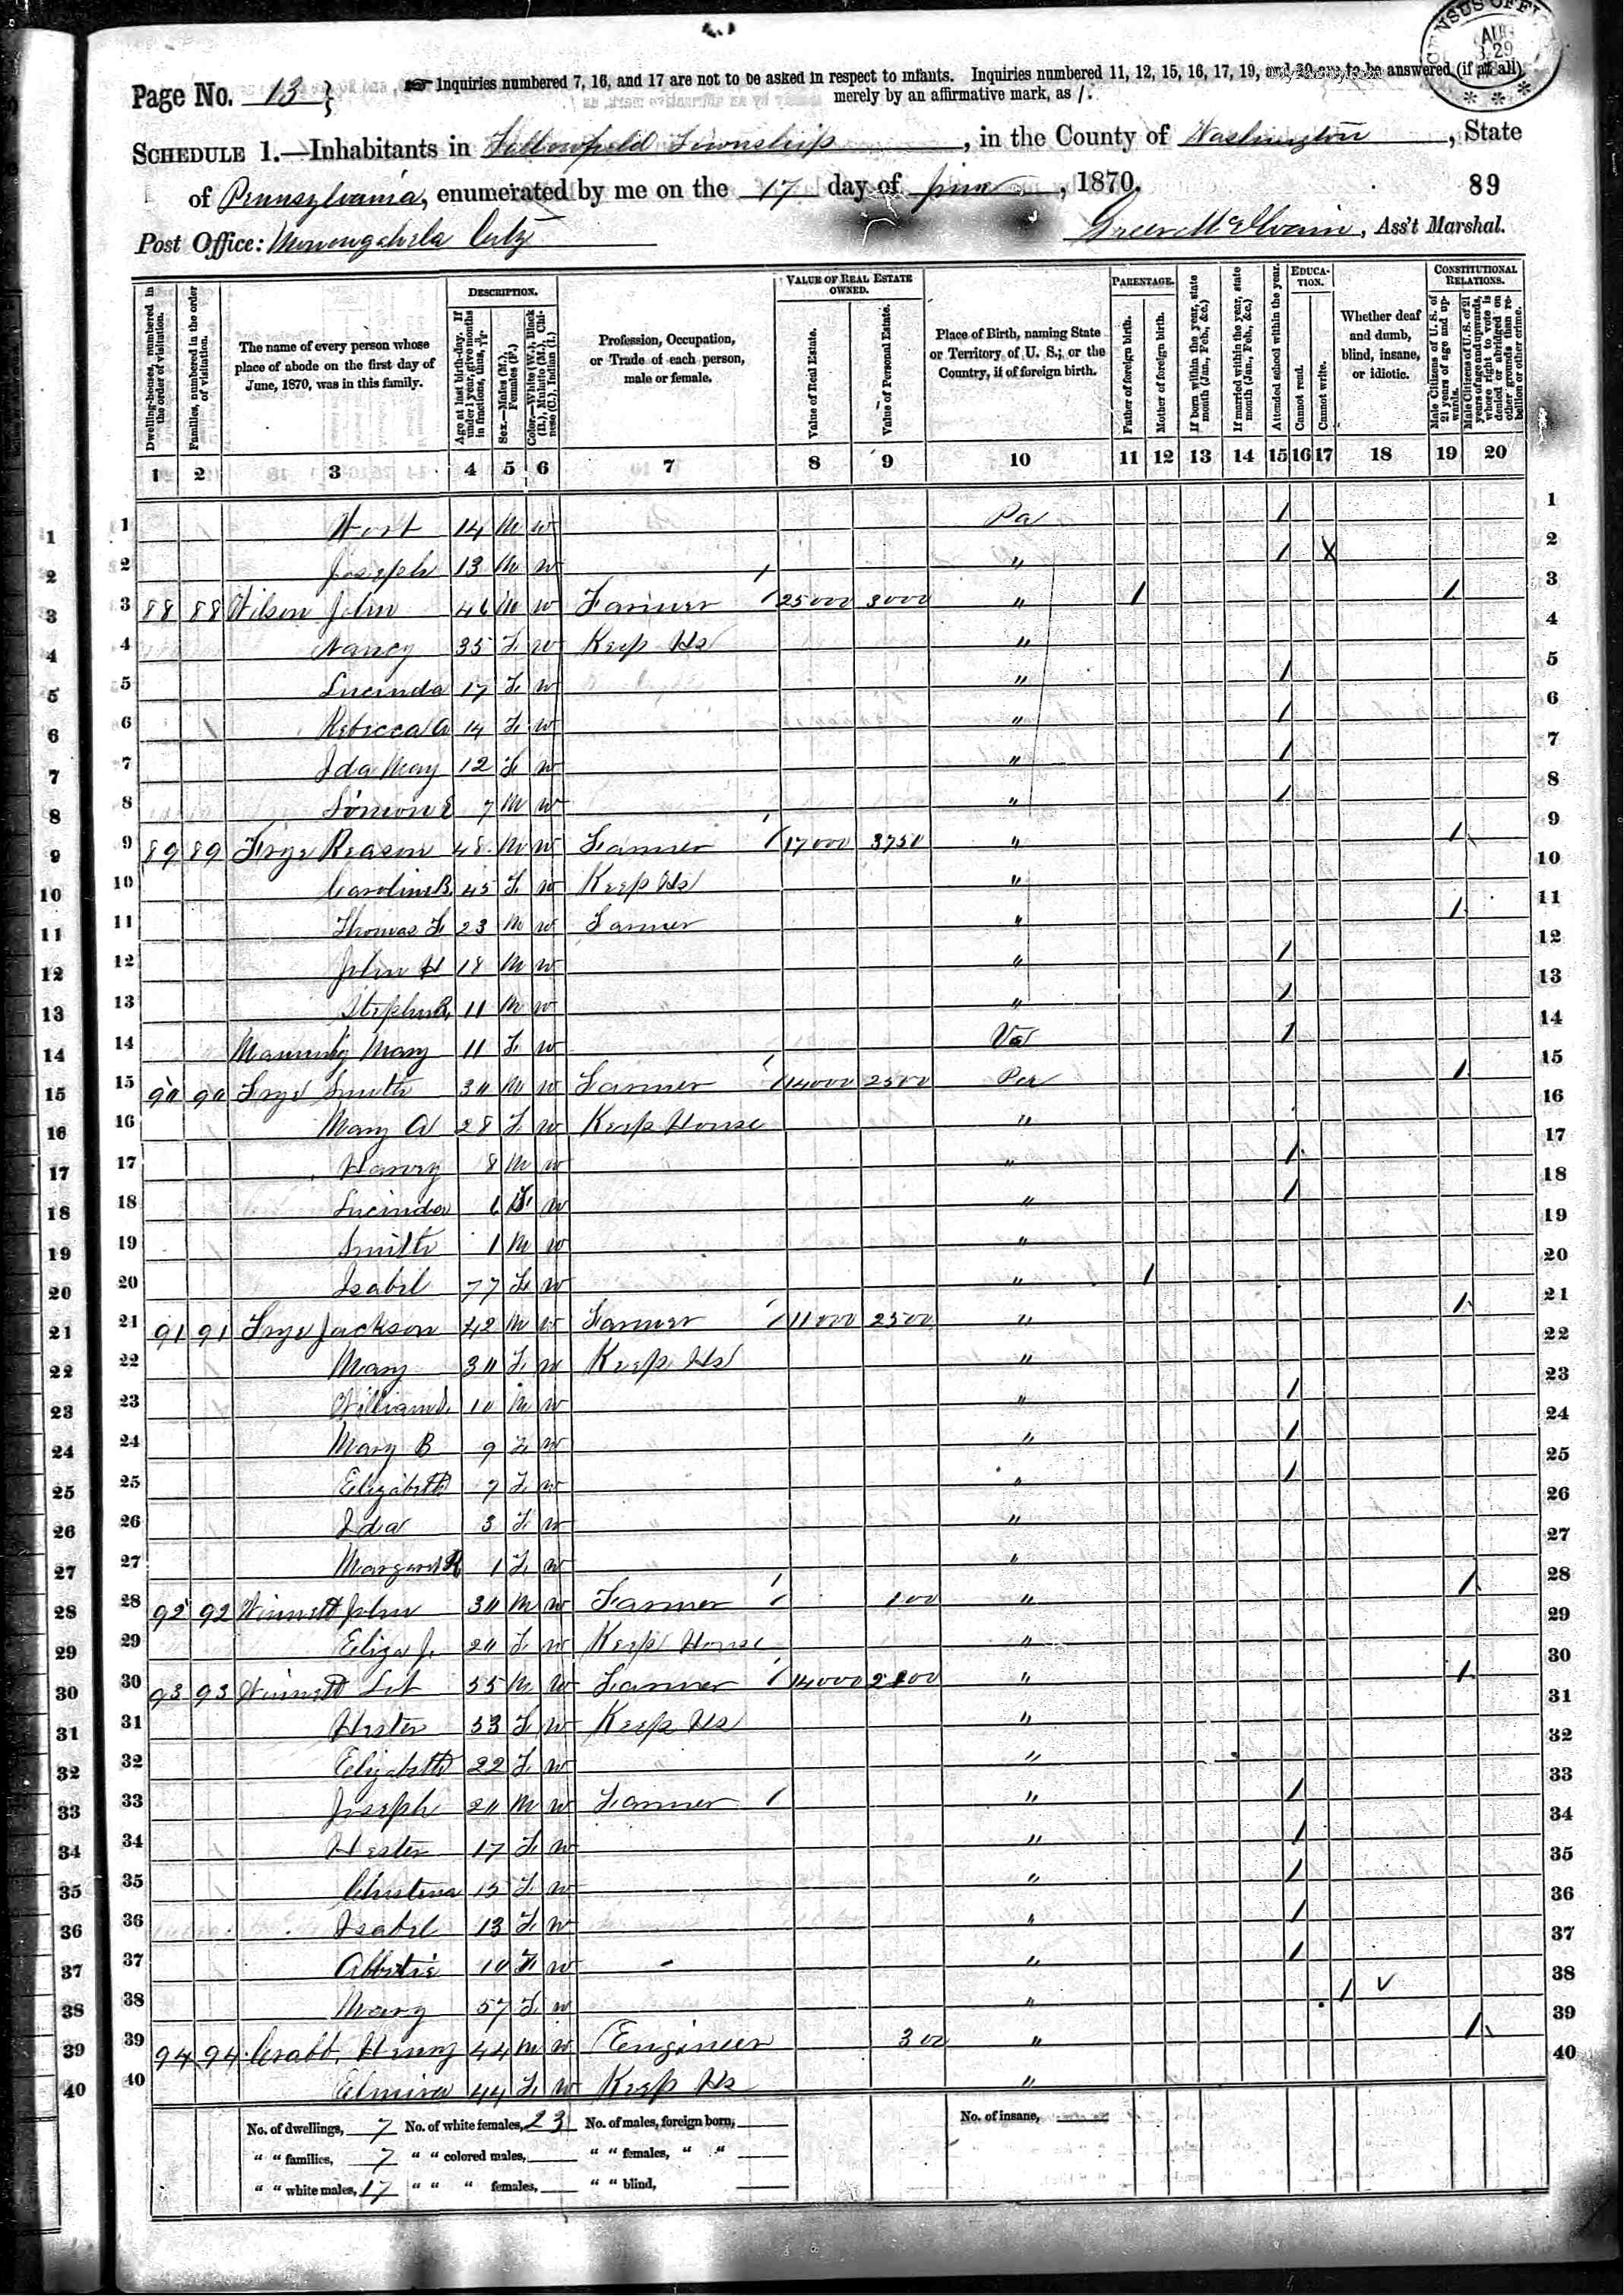 CENSUS OFFICE AUG 29
Page No. 13 } Inquiries numbered 7, 16, and 17 are not to be asked in respect to infants. Inquiries numbered 11, 12, 15, 16, 17, 19, and 20 are to be answered (if at all)
merely by an affirmative mark, as /.
SCHEDULE 1.—Inhabitants in Fallowfield Township, in the County of Washington, State
of Pennsylvania, enumerated by me on the 17 day of June, 1870. 89
Post Office: Monongahela City McIlvain, Ass't Marshal.
DESCRIPTION. VALUE OF REAL ESTATE OWNED. PARENTAGE. EDUCATION. CONSTITUTIONAL RELATIONS.
Dwelling-houses, numbered in the order of visitation.
Families, numbered in the order of visitation.
The name of every person whose place of abode on the first day of June, 1870, was in this family.
Age at last birth-day. If under 1 year, give months in fractions, thus, 3/12.
Sex.—Males (M.), Females (F.)
Color.—White (W.), Black (B.), Mulatto (M.), Chinese (C.), Indian (I.)
Profession, Occupation, or Trade of each person, male or female.
Value of Real Estate.
Value of Personal Estate.
Place of Birth, naming State or Territory of U. S.; or the Country, if of foreign birth.
Father of foreign birth.
Mother of foreign birth.
If born within the year, state month (Jan., Feb., &c.)
If married within the year, state month (Jan., Feb., &c.)
Attended school within the year.
Cannot read.
Cannot write.
Whether deaf and dumb, blind, insane, or idiotic.
Male Citizens of U. S. of 21 years of age and upwards.
Male Citizens of U. S. of 21 years of age and upwards, whose right to vote is denied or abridged on other grounds than rebellion or other crime.
1 2 3 4 5 6 7 8 9 10 11 12 13 14 15 16 17 18 19 20
1 14 M W Pa / 1
2 Joseph 13 M W " / X 2
3 88 88 Wilson John 46 M W Farmer 25000 3000 " / / 3
4 Nancy 35 F W Keep Hs " 4
5 Lucinda 17 F W " / 5
6 Rebecca A 14 F W " / 6
7 Ida May 12 F W " / 7
8 7 M W " / 8
9 89 89 Frye Reason 48 M W Farmer 17000 3750 " / 9
10 Caroline B. 45 F W Keep Hs " 10
11 Thomas F 23 M W Farmer " / 11
12 John H 18 M W " / 12
13 Stephen R. 11 M W " / 13
14 Mary 11 F W Va / 14
15 90 90 Frye Smith 30 M W Farmer 14000 2500 Pa / 15
16 Mary A 28 F W Keep House " 16
17 Harvey 8 M W " / 17
18 Lucinda 6 F W " / 18
19 Smith 1 M W " 19
20 Isabel 77 F W " / 20
21 91 91 Frye Jackson 42 M W Farmer 11000 2500 " / 21
22 Mary 30 F W Keep Hs " 22
23 William 10 M W " / 23
24 Mary B 9 F W " / 24
25 Elizabeth 7 F W " / 25
26 Ida 3 F W " 26
27 Margaret 1 F W " 27
28 92 92 Winnett John 30 M W Farmer 100 " / 28
29 Eliza J. 20 F W Keep House " 29
30 93 93 Winnett Lot 55 M W Farmer 14000 " / 30
31 Hester 53 F W Keep Hs " 31
32 Elizabeth 22 F W " 32
33 Joseph 20 M W Farmer " / 33
34 Hester 17 F W " / 34
35 Christena 15 F W " / 35
36 Isabel 13 F W " / 36
37 10 F W " / 37
38 Mary 57 F W " / ✓ 38
39 94 94 Crabb, Henry 44 M W Engineer 300 " / 39
40 Elmira 44 F W Keep Hs " 40
No. of dwellings, 7 No. of white females, 23 No. of males, foreign born, No. of insane,
" " families, 7 " " colored males, " " females, " "
" " white males, 17 " " " females, " " blind,